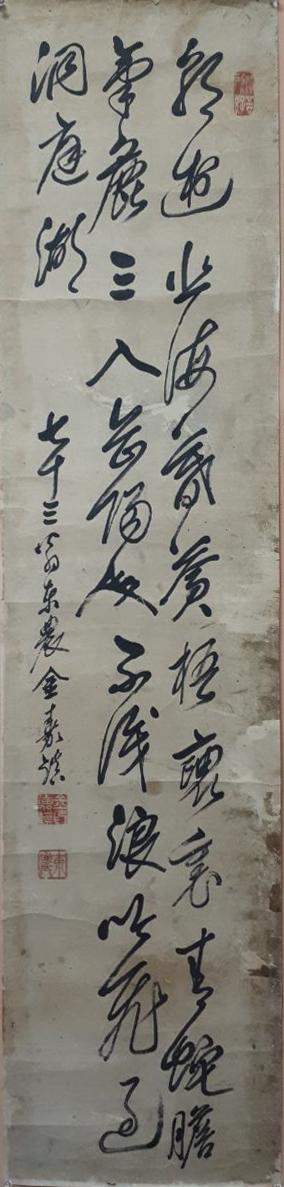 朝遊北海暮蒼梧袖裏青蛇膽
氣麤三入岳陽人不識浪吟飛過
洞庭湖
七十三翁東農金嘉鎭
東農